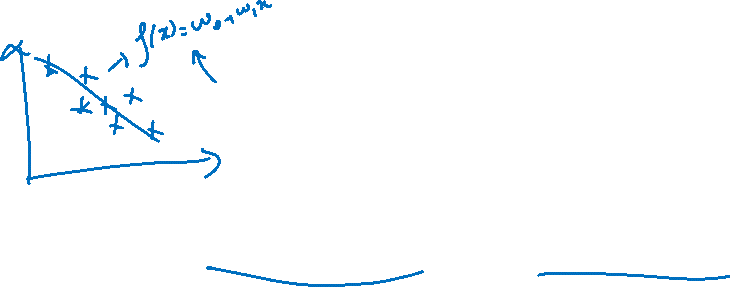 f(x)=w₀+w₁x